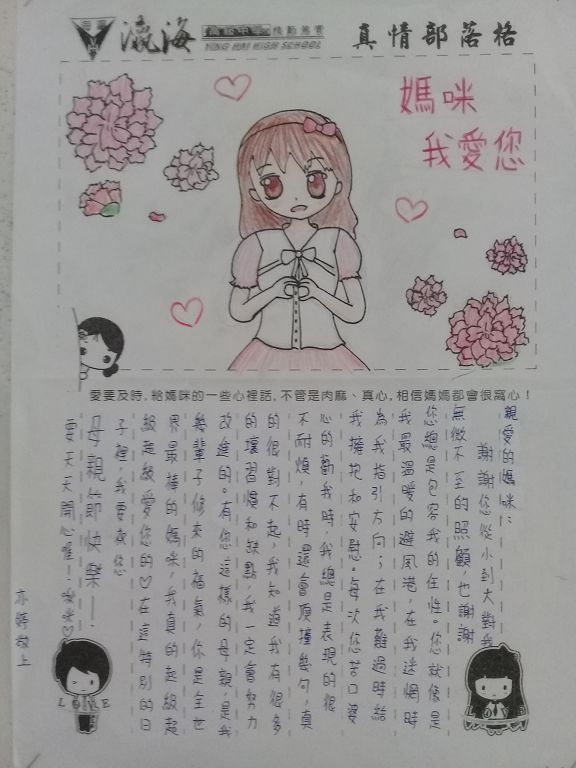 瀛海
高級中學 推動誌賞
YING HAI HIGH SCHOOL
真情部落格
媽咪
我愛您
愛要及時,給媽咪的一些心裡話,不管是肉麻、真心,相信媽媽都會很窩心!
親愛的媽咪:
謝謝您從小到大對我
無微不至的照顧,也謝謝
您總是包容我的任性。您就像是
我最溫暖的避風港,在我迷惘時
為我指引方向;在我難過時給
我擁抱和安慰。每次您苦口婆
心的勸我時,我總是表現的很
不耐煩,有時還會頂撞幾句,真
的很對不起,我知道我有很多
的壞習慣和缺點,我一定會努力
改進的。有您這樣的母親,是我
幾輩子修來的福氣,你是全世
界最棒的媽咪,我真的超級超
級超級愛您的♡在這特別的日
子裡,我要祝您
母親節快樂
要天天開心喔!咪咪♡
亦婷敬上
LOVE
LOVE